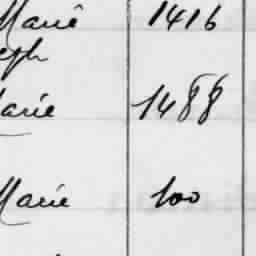 Marie 1416
eph
arie 1488
Marie 600